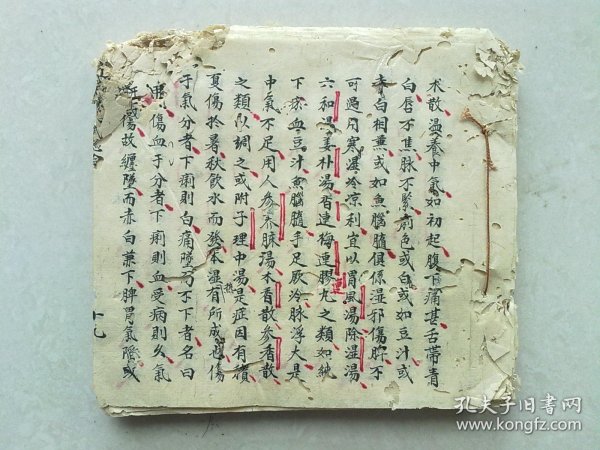 术散溫養中氣如初起腹下痛甚舌帶青
白唇不焦脉不緊前色或白或如豆汁或
赤白相兼或如魚腦髓俱係湿邪傷脾不
可過用寒湿冷凉利宜以胃風湯除湿湯
六和湯姜朴湯香連梅連膠丸之類如純
下瘀血豆汁魚腦髓手足厥冷脉浮大是
中氣不足用人參养脉湯木香散參香散
之類以調之或附子理中湯是症因有積
夏傷於暑秋飲水而發本湿有所成傷
于氣分者下痢則白痛墜不下者名曰
傷血于分者下痢則血受病則久氣
傷故纏墜而赤白兼下脾胃氣或
十九
孔夫子旧书网
www.kongfz.com